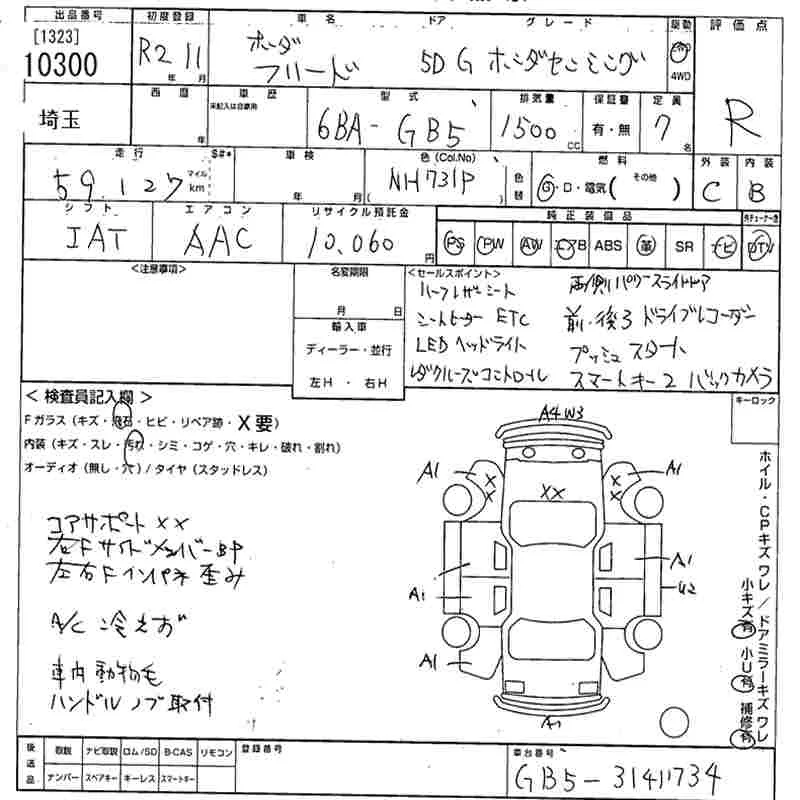 出品番号 初度登録 車名 ドア グレード 駆動 評価点
[1323]
10300
R2 11
年 月
ホンダ
フリード
5D G ホンダセンシング
2WD
4WD
R
西暦 車歴 型式 排気量 保証書 定員
未記入は自家用
埼玉
年
6BA-GB5
1500 cc
有・無
7 名
走行 S#* 車検 色 (Col.No) 燃料 外装 内装
59,127
マイル
km
年 月
NH731P
色替
G・D・電気 (その他 )
C B
シフト エアコン リサイクル預託金 純正装備品 社外チューナー含
IAT AAC 10,060 円
PS PW AW エアB ABS 革 SR ナビ DTV
<注意事項>
名変期限
月 日
輸入車
ディーラー・並行
左H ・ 右H
<セールスポイント>
ハーフレザーシート 両側パワースライドドア
シートヒーター ETC 前・後3 ドライブレコーダー
LEDヘッドライト プッシュスタート
レダクルーズコントロイル スマートキー2 バックカメラ
キーロック
<検査員記入欄>
Fガラス (キズ・飛石・ヒビ・リペア跡・X要)
内装 (キズ・スレ・汚れ・シミ・コゲ・穴・キレ・破れ・割れ)
オーディオ (無し・穴) / タイヤ (スタッドレス)
コアサポート XX
右FサイドメンバーBP
左右Fインパネ歪み
A/C 冷えず
車内動物毛
ハンドルノブ取付
A4 W3
A1 X X XX X X A1
A1 A1
U2
A1
A1
ホイル・CPキズワレ/ドアミラーキズワレ
小キズ有 小U有 補修有
後送品
取説 ナビ取説 ロム/SD B-CAS リモコン
ナンバー スペアキー キーレス スマートキー
登録番号
車台番号
GB5-3141734